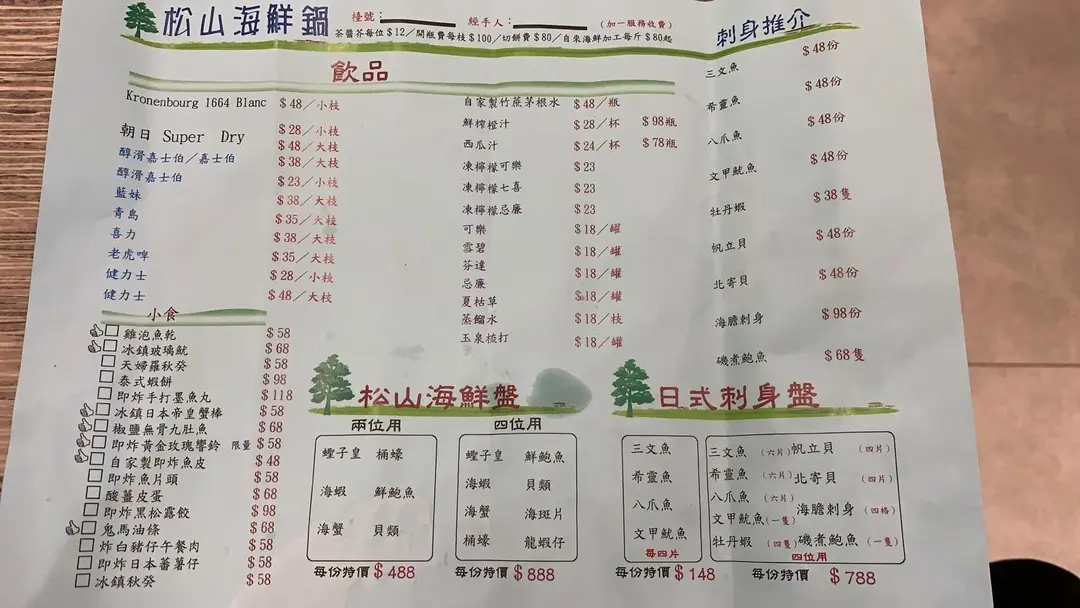 松山海鮮鍋
檯號：
經手人：
(加一服務收費)
茶醬芥每位$12／開瓶費每枝$100／切餅費$80／自來海鮮加工每斤$80起
飲品
Kronenbourg 1664 Blanc $48／小枝
朝日 Super Dry $28／小枝
$48／大枝
醇滑嘉士伯／嘉士伯 $38／大枝
醇滑嘉士伯 $23／小枝
藍妹 $38／大枝
青島 $35／大枝
喜力 $38／大枝
老虎啤 $35／大枝
健力士 $28／小枝
健力士 $48／大枝
自家製竹蔗茅根水 $48／瓶
鮮榨橙汁 $28／杯 $98瓶
西瓜汁 $24／杯 $78瓶
凍檸檬可樂 $23
凍檸檬七喜 $23
凍檸檬忌廉 $23
可樂 $18／罐
雪碧 $18／罐
芬達 $18／罐
忌廉 $18／罐
夏枯草 $18／罐
蒸餾水 $18／枝
玉泉梳打 $18／罐
刺身推介
三文魚 $48份
希靈魚 $48份
八爪魚 $48份
文甲魷魚 $48份
牡丹蝦 $38隻
帆立貝 $48份
北寄貝 $48份
海膽刺身 $98份
磯煮鮑魚 $68隻
小食
雞泡魚乾 $58
冰鎮玻璃魷 $68
天婦羅秋癸 $58
泰式蝦餅 $98
即炸手打墨魚丸 $118
冰鎮日本帝皇蟹棒 $58
椒鹽無骨九肚魚 $68
即炸黃金玫瑰響鈴 限量 $58
自家製即炸魚皮 $48
即炸魚片頭 $58
酸薑皮蛋 $68
即炸黑松露餃 $98
鬼馬油條 $68
炸白豬仔午餐肉 $58
即炸日本蕃薯仔 $58
冰鎮秋癸 $58
松山海鮮盤
兩位用
蟶子皇 桶蠔
海蝦 鮮鮑魚
海蟹 貝類
每份特價 $488
四位用
蟶子皇 鮮鮑魚
海蝦 貝類
海蟹 海斑片
桶蠔 龍蝦仔
每份特價 $888
日式刺身盤
三文魚
希靈魚
八爪魚
文甲魷魚
每四片
每份特價 $148
三文魚 (六片) 帆立貝 (四片)
希靈魚 (六片) 北寄貝 (四片)
八爪魚 (六片)
文甲魷魚 (一隻) 海膽刺身 (四格)
牡丹蝦 (四隻) 磯煮鮑魚 (一隻)
四位用
每份特價 $788